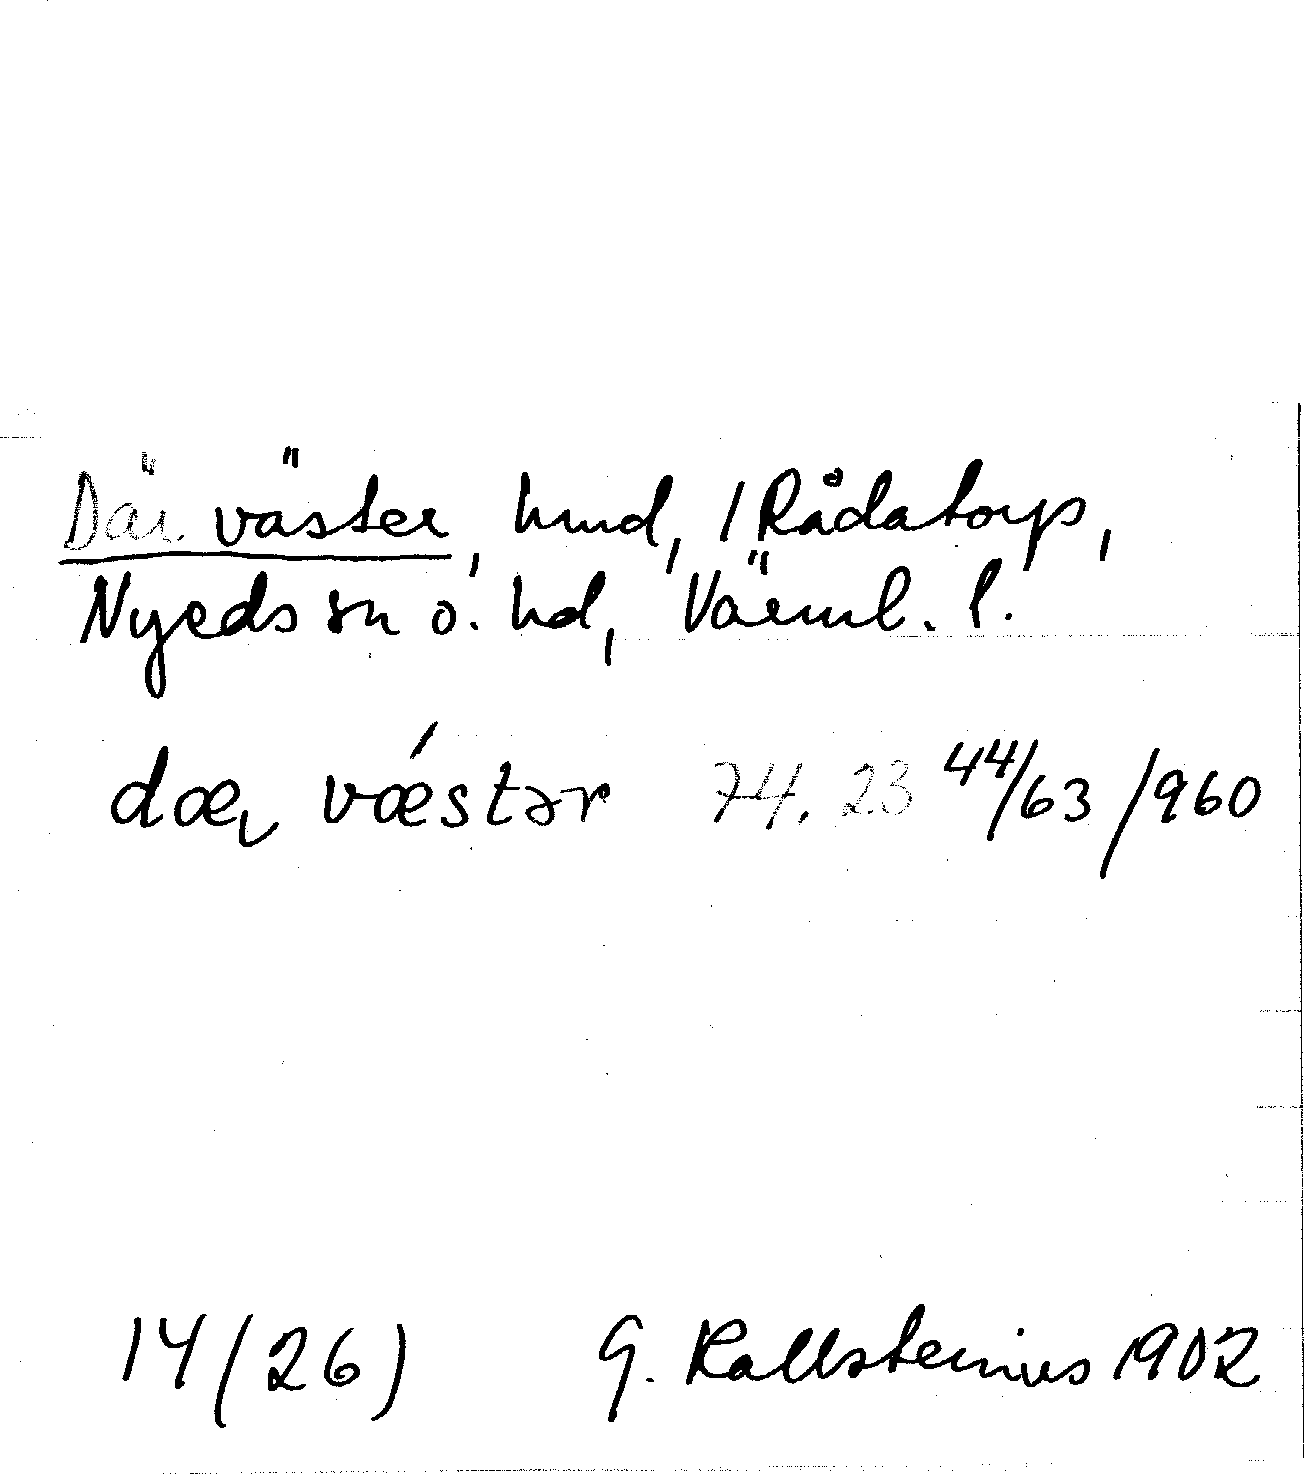 Där väster, hmd, 1 Rådatorp,
Nyeds sn o. hd, Värml. l.
dæɽ vǽstər 74. 23 44/63 /960
14 (26) G. Kallstenius 1902